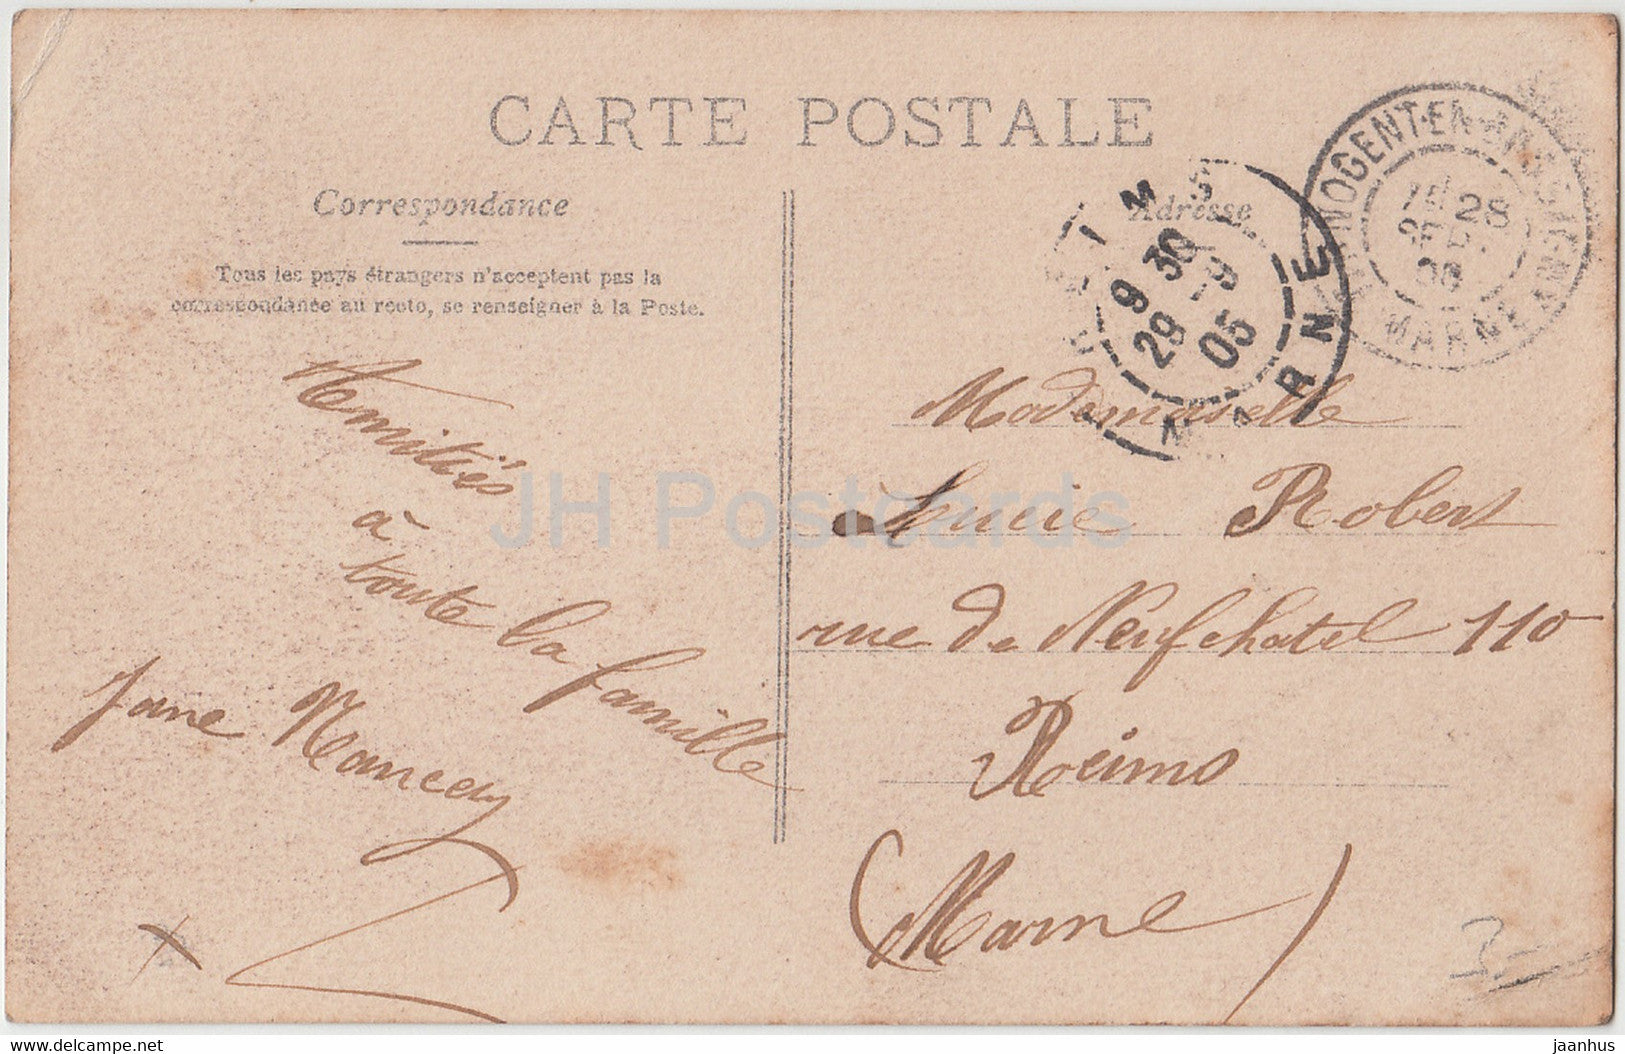 CARTE POSTALE
Correspondance
Tous les pays étrangers n'acceptent pas la
correspondance au recto, se renseigner à la Poste.
Amitiés
à
toute la famille
Jane Nancey
Adresse
REIMS
MARNE
9 30
29 -9
05
NOGENT-EN-BASSIGNY
28
Hte MARNE
Mademoiselle
Lucie Robert
rue de Neufchatel 110
Reims
(Marne)
3-
JH Postcards
www.delcampe.net
jaanhus